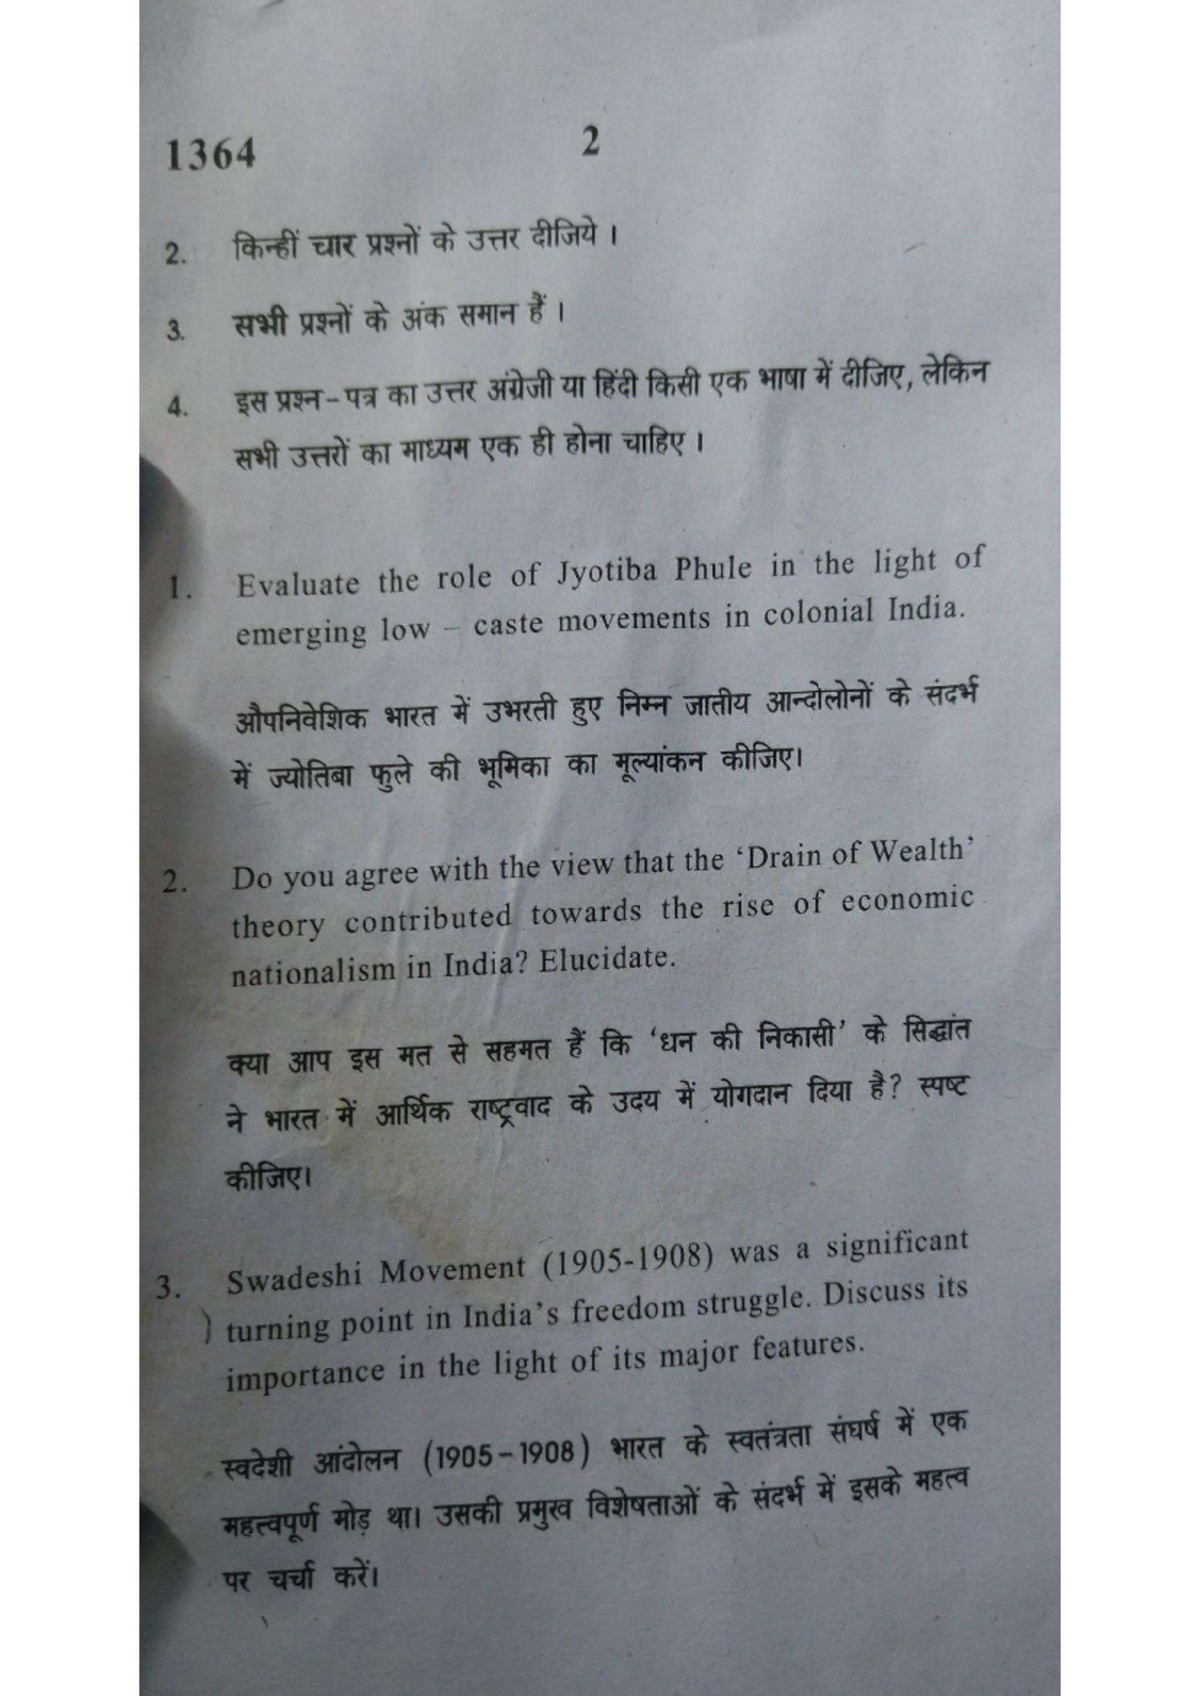 1364
2
2. किन्हीं चार प्रश्नों के उत्तर दीजिये ।
3. सभी प्रश्नों के अंक समान हैं ।
4. इस प्रश्न-पत्र का उत्तर अंग्रेजी या हिंदी किसी एक भाषा में दीजिए, लेकिन
सभी उत्तरों का माध्यम एक ही होना चाहिए ।
1. Evaluate the role of Jyotiba Phule in the light of
emerging low – caste movements in colonial India.
औपनिवेशिक भारत में उभरती हुए निम्न जातीय आन्दोलोनों के संदर्भ
में ज्योतिबा फुले की भूमिका का मूल्यांकन कीजिए।
2. Do you agree with the view that the ‘Drain of Wealth’
theory contributed towards the rise of economic
nationalism in India? Elucidate.
क्या आप इस मत से सहमत हैं कि ‘धन की निकासी’ के सिद्धांत
ने भारत में आर्थिक राष्ट्रवाद के उदय में योगदान दिया है? स्पष्ट
कीजिए।
3. Swadeshi Movement (1905-1908) was a significant
turning point in India’s freedom struggle. Discuss its
importance in the light of its major features.
स्वदेशी आंदोलन (1905-1908) भारत के स्वतंत्रता संघर्ष में एक
महत्त्वपूर्ण मोड़ था। उसकी प्रमुख विशेषताओं के संदर्भ में इसके महत्व
पर चर्चा करें।